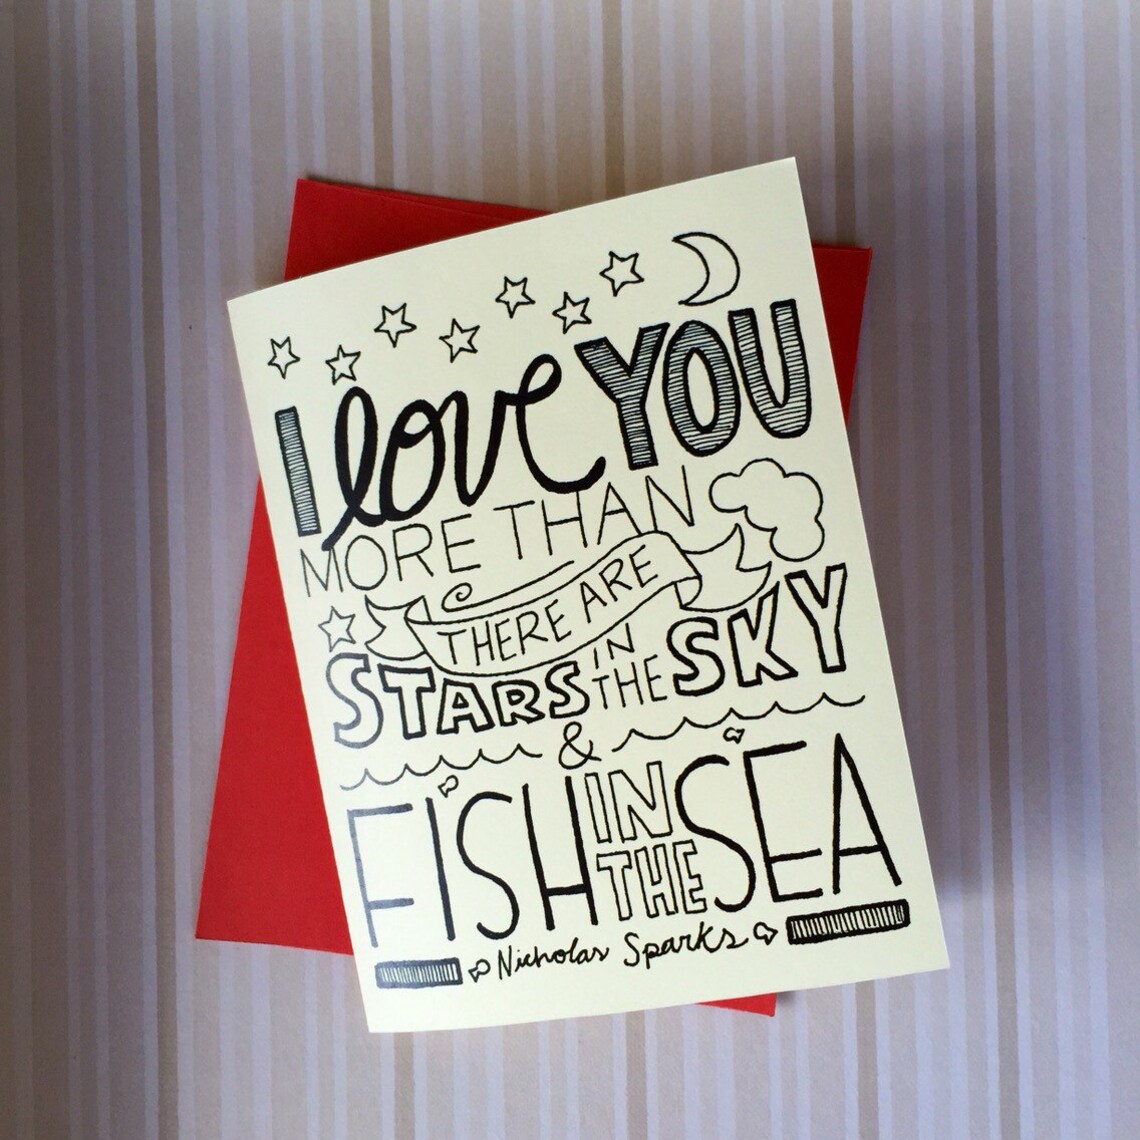 I love YOU
MORE THAN
THERE ARE
STARS IN THE SKY
&
FISH IN THE SEA
Nicholas Sparks